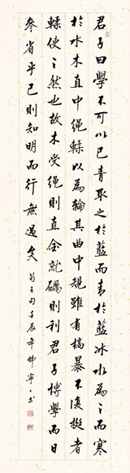 君子曰學不可以已青取之於藍而青於藍冰水為之而寒
於水木直中繩輮以為輪其曲中規雖有槁暴不復挺者
輮使之然也故木受繩則直金就礪則利君子博學而日
參省乎己則知明而行無過矣
荀子句壬辰年